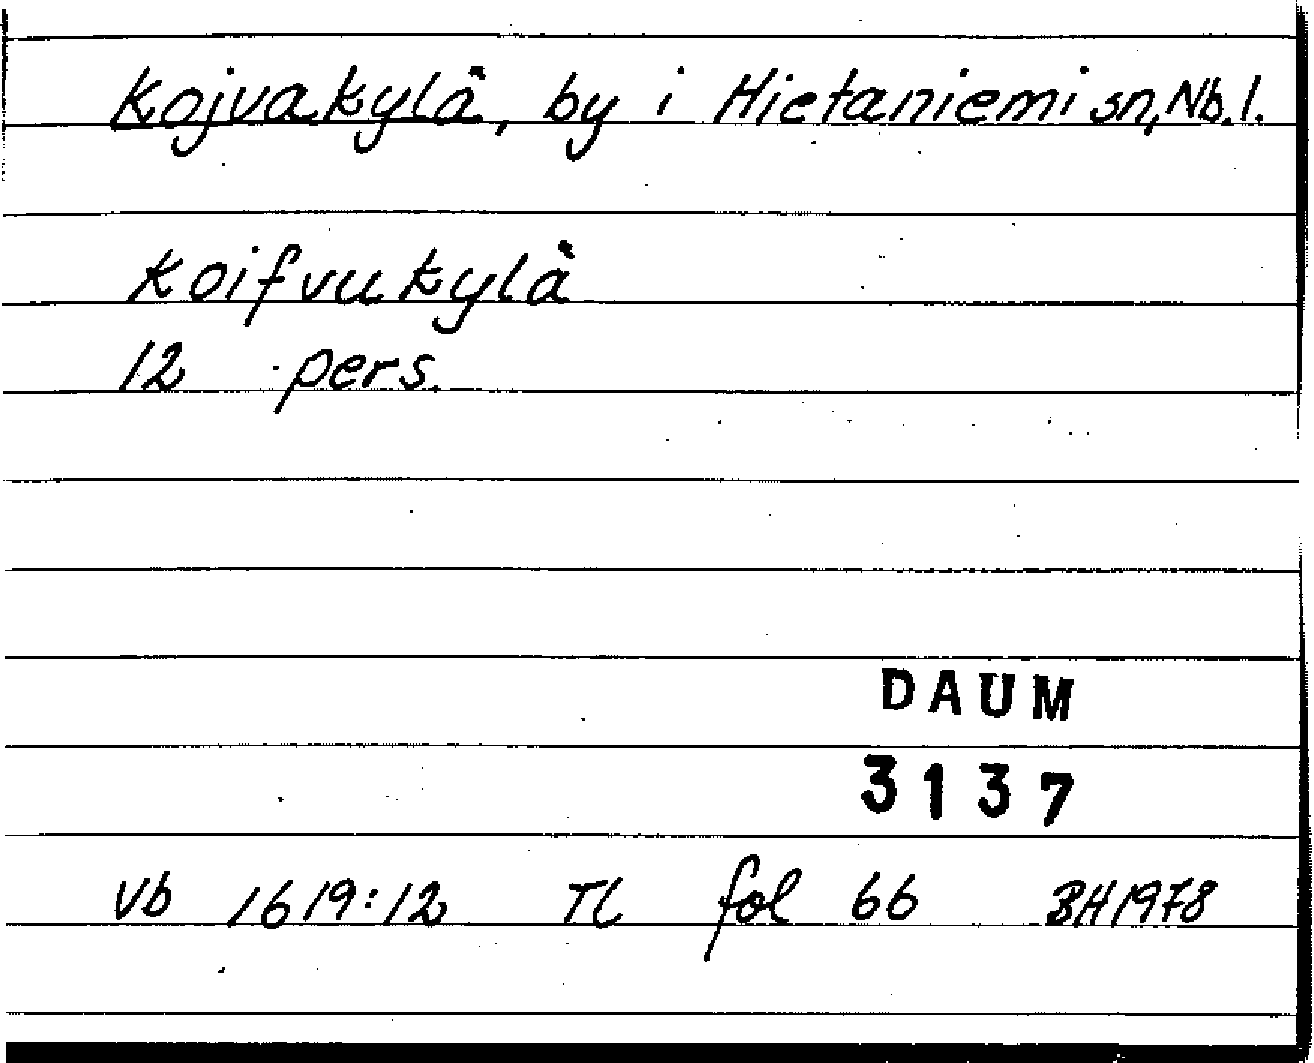 Kojvakylä, by i Hietaniemi sn, Nb. l.
Koifvukylä
12 pers.
DAUM
3137
Vb 1619:12 TL fol 66 BH 1978